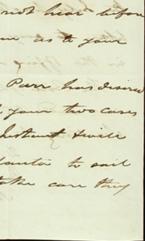 not hear before
me as to your
Parr has desired
your two cases
Instant & will
to sail
take care they